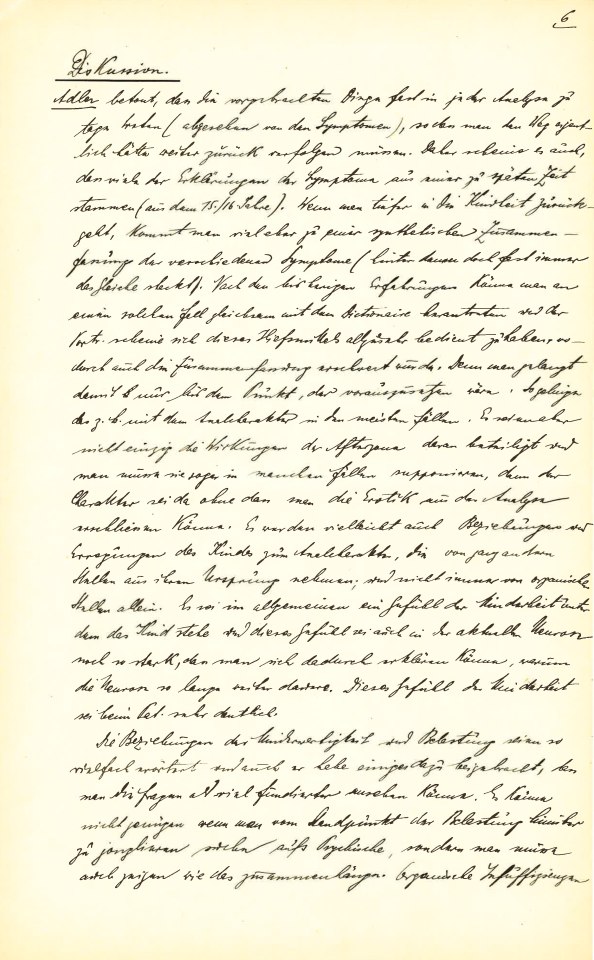 6
Diskussion.
Adler betont, dass die vorgebrachten Dinge fast in jeder Analyse zu
tage treten (abgesehen von den Symptomen), sodass man den Weg eigent-
lich hätte weiter zurück verfolgen müssen. Daher scheine es auch,
dass viele der Erklärungen der Symptome aus einer zu späten Zeit
stammen (aus dem 15./16 Jahre). Wenn man tiefer in die Kindheit zurück-
geht, kommt man viel eher zu einer synthetischen Zusammen-
fassung der verschiedenen Symptome (hinter denen doch fast immer
das Gleiche steckt). Nach den bisherigen Erfahrungen könne man an
einen solchen Fall gleichsam mit dem Dictionaire herantreten und der
Vortr. scheine sich dieses Hilfsmittels allzusehr bedient zu haben, wo-
durch auch die Zusammenfassung erschwert wurde. Denn man gelangt
damit nur bis dem Punkt, der vorauszusetzen wäre. So gelinge
das z. b. mit dem Analcharakter in den meisten Fällen. Es seien aber
nicht einzig die Wirkungen der Afterzone daran beteiligt und
man müsse sie sogar in manchen Fällen supponieren, denn der
Charakter sei da ohne dass man die Erotik aus der Analyse
erschliessen könne. Es werden vielleicht auch Beziehungen und
Erregungen des Kindes zum Analcharakter, die von ganz andern
Stellen aus ihren Ursprung nehmen; und nicht immer von organischen
Stellen allein. Es sei im allgemeinen ein Gefühl der Minderheit unter
dem das Kind stehe und dieses Gefühl sei auch in der aktuellen Neurose
noch so stark, dass man sich dadurch erklären könne, warum
die Neurose so lange weiter dauere. Dieses Gefühl der Minderheit
sei beim Pat. sehr deutlich.
Die Beziehungen der Minderwertigkeit und Belastung seien so
vielfach erörtert und auch er habe einiges dazu beigebracht, dass
man die Fragen als viel fundierter ansehen könne. Es könne
nicht genügen wenn man vom Standpunkt der Belastung hinüber
zu jonglieren suche aufs Psychische, sondern man müsse
auch zeigen wie das zusammenhänge. Organische Insuffizienzen